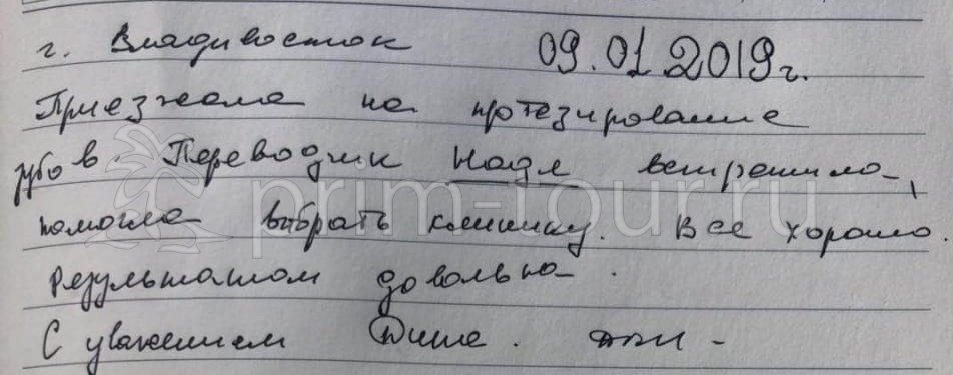 г. Владивосток 09.01.2019г.
Приезжала на протезирование
зубов. Переводчик Надя встретила,
помогла выбрать клинику. Все хорошо.
Результатом довольна.
С уважением
prim-tour.ru